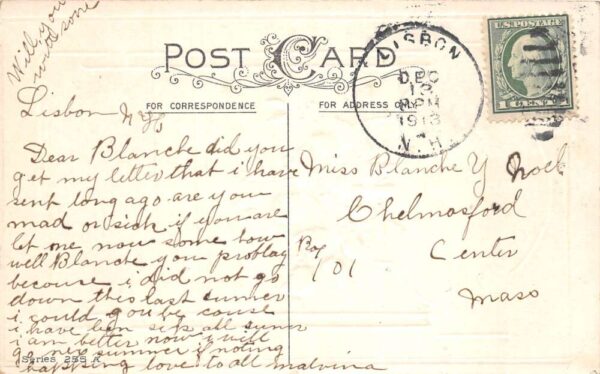 Will you
writ sone
POST CARD
FOR CORRESPONDENCE
FOR ADDRESS ONLY
U.S. POSTAGE
1 CENT 1
LISBON
DEC
12
PM
1913
N.H.
Lisbon N H
Dear Blanche did you
get my letter that i have
sent long ago are you
mad or sick if you are
let me now some how
well Blanche you problay
because i did not go
down this last sumer
i could you be cause
i have ben sik all sumer
i am better now i will
go nex summer if noting
happing love to all malvina
Series 255 A
Miss Blanche Y Noel
Chelmosford
Center
Box
101
Mass